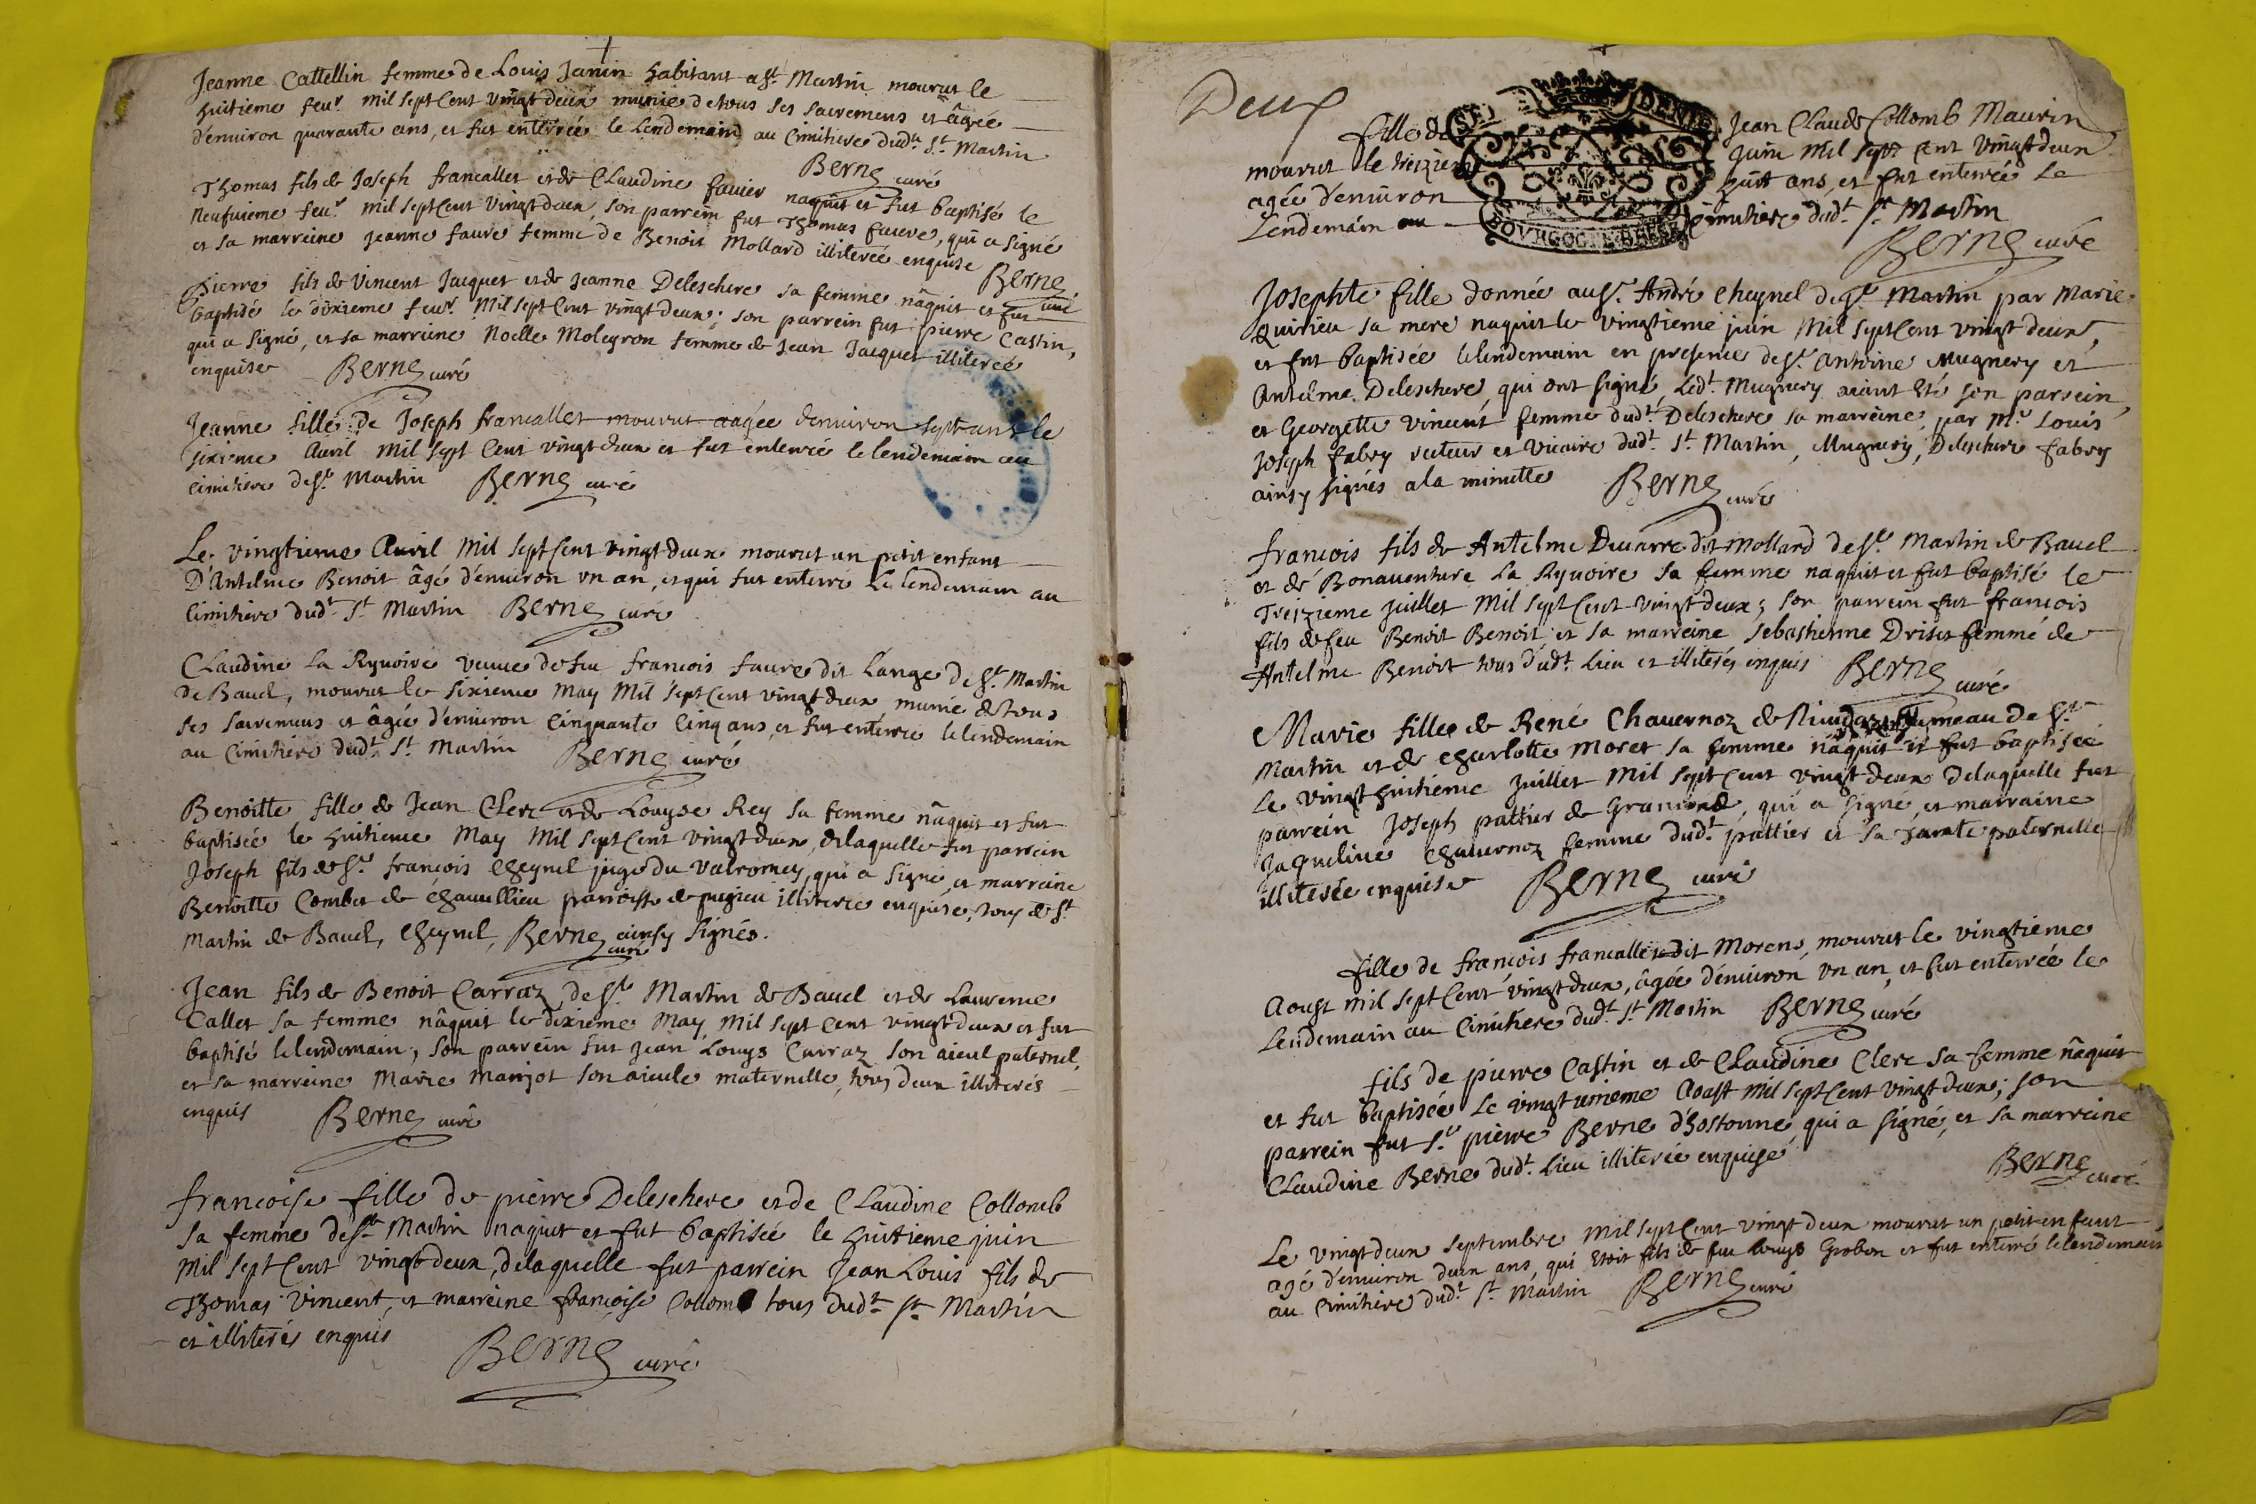 Jeanne Cattellin femme de Louis Janin habitant a St. Martin mourut le
huitieme feur. mil sept cent vingt deux munie de tous ses sacremens et âgée
d'environ quarante ans, et fut enterrée le lendemain au Cimitiere dudt. St. Martin
Berne curé
Thomas fils de Joseph francallet et de Claudine favier naquit et fut baptisé le
neufuieme feur. mil sept cent vingt deux, son parrein fut Thomas faure, qui a signé
et sa marreine jeanne faure femme de Benoit Mollard illiterée enquise Berne curé
Pierre fils de Vincent Jacquet et de Jeanne Deleschere sa femme nâquit et fut
baptisé le dixieme feur. mil sept cent vingt deux; son parrein fut pierre Castin,
qui a signé, et sa marreine Noelle Moleyron femme de Jean Jacquet illiterée
enquise Berne curé
Jeanne fille de Joseph francallet mourut aagée denuiron sept ans le
sixieme Auril mil sept Cent vingt deux et fut enterrée le lendemain au
cimitiere de St. Martin Berne curé
Le vingtieme Auril mil sept cent vingt deux mourut un petit enfant
D'Antelme Benoit âgé d'enuiron vn an, et qui fut enterré Le lendemain au
Cimitiere dudt. St. Martin Berne curé
Claudine La Ryuoire veuue de feu francois faure dit Lange de St. Martin
de Bauel, mourut le sixieme May mil sept cent vingt deux munie de tous
ses sacremens et âgée d'enuiron cinquante cinq ans, et fut enterrée le lendemain
au Cimitiere dudt. St. Martin Berne curé
Benoitte fille de Jean Clerc et de Louyse Rey sa femme nâquit et fut
baptisée le huitieme May mil sept cent vingt deux, de laquelle fut parrein
Joseph fils de Sr. françois Cheynel juge du Valromey, qui a signé, et marreine
Benoitte Combet de Chauillieu parroisse de pugieu illiterée enquise, tous de St.
Martin de Bauel, Cheynel, Berne curé ainsy signés.
Jean fils de Benoit Carraz de St. Martin de Bauel et de Laurence
Callet sa femme nâquit le dixieme May mil sept cent vingt deux et fut
baptisé le lendemain, son parrein fut jean Louys Carraz son aieul paternel,
et sa marreine Marie Manjot son aieule maternelle, tous deux illiterés
enquis Berne curé
francoise fille de pierre Deleschere et de Claudine Collomb
sa femme de St. Martin naquit et fut baptisée le huitieme juin
mil sept cent vingt deux, de laquelle fut parrein Jean Louis fils de
Thomas Vincent, et marreine francoise Collomb tous dudt. St. Martin
et illiterés enquis Berne curé
Deux
GE. DE DENIE
BOURGOGNE BRESSE
fille de Jean Claude Collomb Maurin
mourut le treizieme juin mil sept cent vingt deux
agée d'enuiron huit ans, et fut enterrée Le
Lendemain au Cimitiere dudt. St. Martin
Berne curé
Josephte fille donnée au Sr. André Cheynel de St. Martin par Marie
Quirieu sa mere naquit le vingtieme juin mil sept cent vingt deux,
et fut baptisée le lendemain en presence de Sr. Antoine Mugnery et
Antelme Deleschere, qui ont signé, Ledt. Mugnery aiant été son parrein,
et Georgette Vincent femme dudt. Deleschere sa marreine, par Mre. Louis
Joseph fabry recteur et Vicaire dudt. St. Martin, Mugnery, Deleschere fabry
ainsy signés a la minutte Berne curé
francois fils de Antelme Ducarre dit Mollard de St. Martin de Bauel
et de Bonauenture La Ryuoire sa femme naquit et fut baptisé le
Treizieme juillet mil sept cent vingt deux; son parrein fut francois
fils de feu Benoit Benoit et sa marreine sebastienne Driset femme de
Antelme Benoit tous dudt. lieu et illiterés enquis Berne curé
Marie fille de René Chauernoz de hameau de St.
Martin et de Charlotte Moret sa femme nâquit et fut baptisée
le vingt huitieme juillet mil sept cent vingt deux de laquelle fut
parrein Joseph pattier de Gramond, qui a signé, et marraine
Jaqueline Chauernoz femme dudt. pattier et sa tante paternelle
illiterée enquise Berne curé
fille de françois francallet dit Morens, mourut le vingtieme
Aoust mil sept cent vingt deux, âgée d'enuiron vn an, et fut enterrée le
Lendemain au Cimitiere dudt. St. Martin Berne curé
fils de pierre Castin et de Claudine Clerc sa femme nâquit
et fut baptisée le vingt unieme Aoust mil sept cent vingt deux; son
parrein fut Sr. pierre Berne d'hostonne, qui a signé, et sa marreine
Claudine Berne dudt. lieu illiterée enquise Berne curé
Le vingt deux septembre mil sept cent vingt deux mourut un petit enfant
agé d'enuiron deux ans, qui etoit fils de feu Louys Grobon et fut enterré le lendemain
au Cimitiere dudt. St. Martin Berne curé